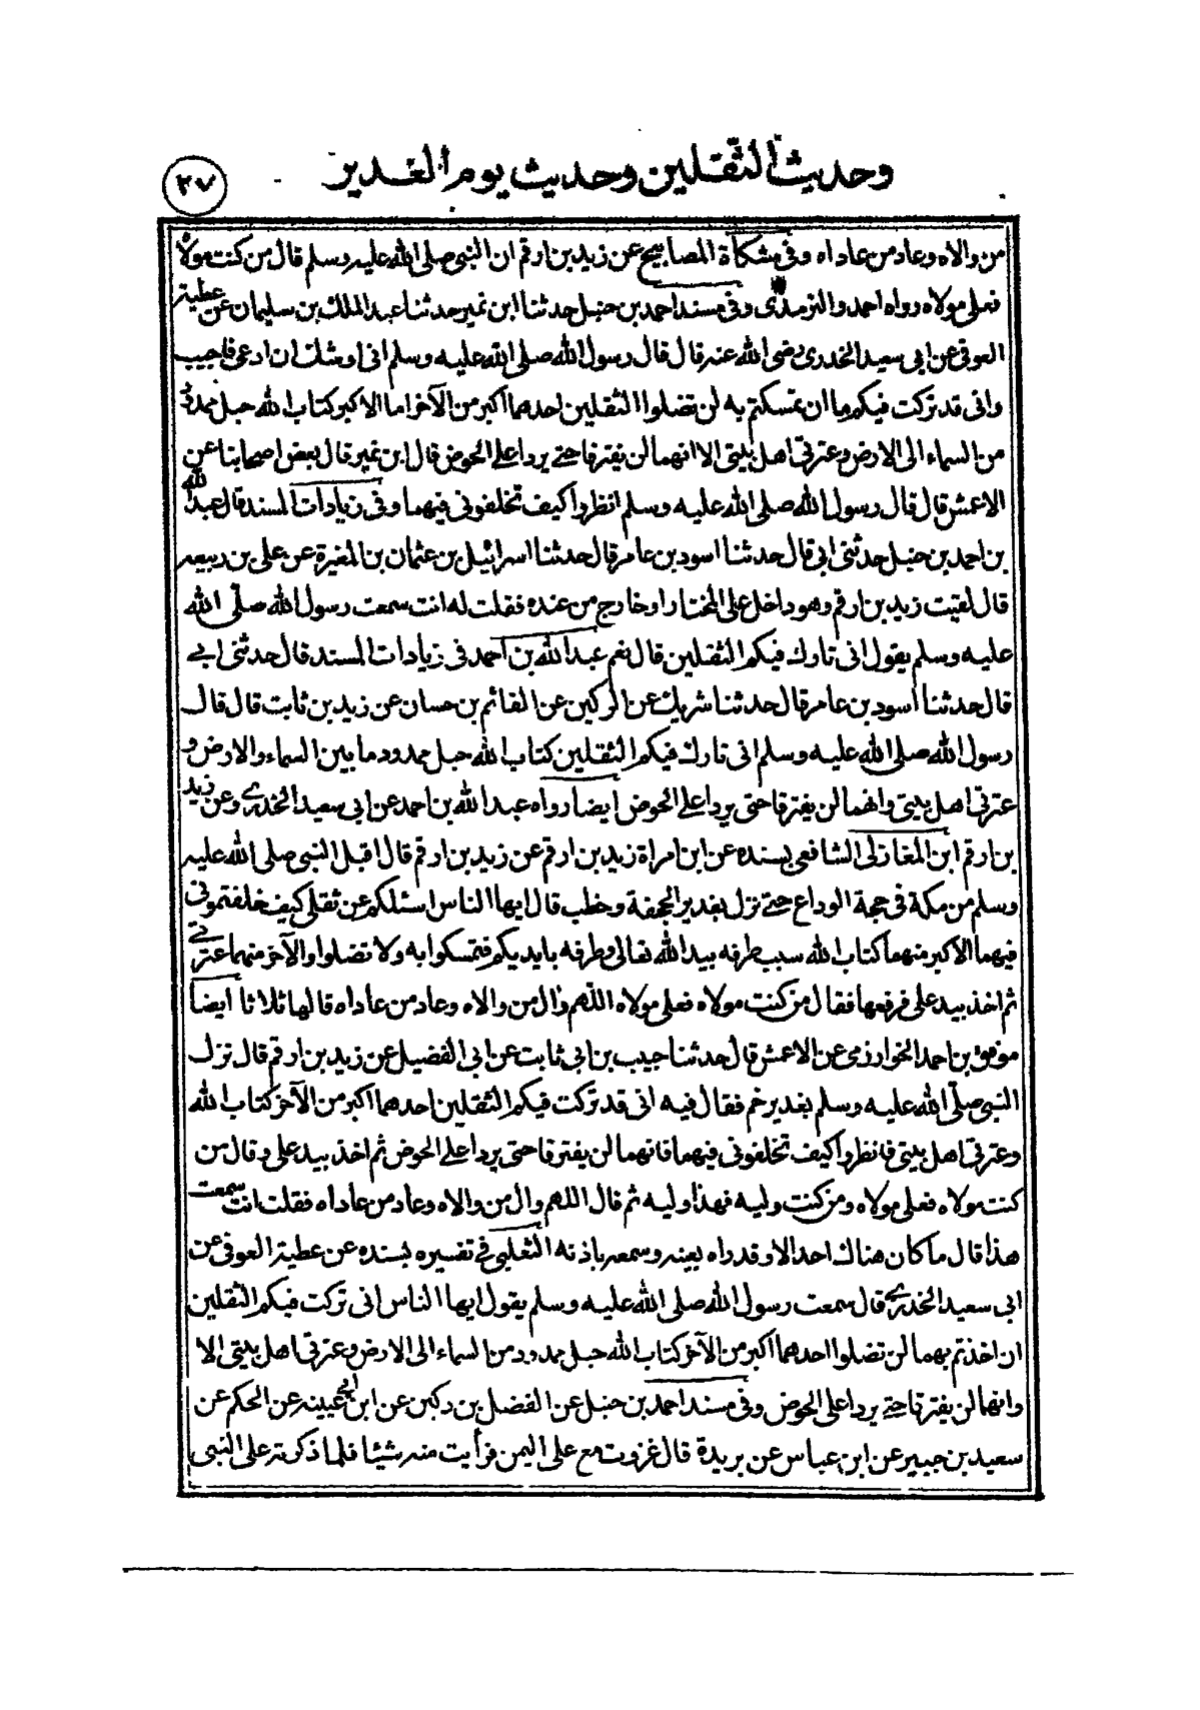 وحديث الثقلين وحديث يوم الغدير
٣٧
من والاه وعاد من عاداه وفى مشكاة المصابيح عن زيد بن ارقم ان النبى صلى الله عليه وسلم قال من كنت مولاه
فعلى مولاه رواه احمد والترمذى وفى مسند احمد بن حنبل حدثنا ابن نمير حدثنا عبد الملك بن سليمان عن عطية
العوفى عن ابى سعيد الخدرى رضى الله عنه قال قال رسول الله صلى الله عليه وسلم انى اوشك ان ادعى فاجيب
وانى قد تركت فيكم ما ان تمسكتم به لن تضلوا الثقلين احدهما اكبر من الآخر اما الاكبر كتاب الله حبل ممدود
من السماء الى الارض وعترتى اهل بيتى الا انهما لن يفترقا حتى يردا على الحوض قال ابن نمير قال بعض اصحابنا عن
الاعمش قال قال رسول الله صلى الله عليه وسلم انظروا كيف تخلفونى فيهما وفى زيادات المسند قال عبد الله
بن احمد بن حنبل حدثنى ابى قال حدثنا اسود بن عامر قال حدثنا اسرائيل بن عثمان بن المغيرة عن على بن ربيعه
قال لقيت زيد بن ارقم وهو داخل على المختار او خارج من عنده فقلت له انت سمعت رسول الله صلى الله
عليه وسلم يقول انى تارك فيكم الثقلين قال نعم عبد الله بن احمد فى زيادات المسند قال حدثنى ابى
قال حدثنا اسود بن عامر قال حدثنا شريك عن الركين عن القائم بن حسان عن زيد بن ثابت قال قال
رسول الله صلى الله عليه وسلم انى تارك فيكم الثقلين كتاب الله حبل ممدود ما بين السماء والارض و
عترتى اهل بيتى وانهما لن يفترقا حتى يردا على الحوض ايضا رواه عبد الله بن احمد عن ابى سعيد الخدرى وعن زيد
بن ارقم ابن المغازلى الشافعى بسنده عن ابن امراة زيد بن ارقم عن زيد بن ارقم قال اقبل النبى صلى الله عليه
وسلم من مكة فى حجة الوداع حتى نزل بغدير الجحفة وخطب قال ايها الناس اسئلكم عن ثقلى كيف خلفتمونى
فيهما الاكبر منهما كتاب الله سبب طرفه بيد الله تعالى وطرفه بايديكم فتمسكوا به ولا تضلوا والآخر منهما عترتى
ثم اخذ بيد على فرفعها فقال من كنت مولاه فعلى مولاه اللهم وال من والاه وعاد من عاداه قالها ثلاثا ايضا
موفق بن احمد الخوارزمى عن الاعمش قال حدثنا حبيب بن ابى ثابت عن ابى الفضيل عن زيد بن ارقم قال نزل
النبى صلى الله عليه وسلم بغدير خم فقال فيه انى قد تركت فيكم الثقلين احدهما اكبر من الآخر كتاب الله
وعترتى اهل بيتى فانظروا كيف تخلفونى فيهما فانهما لن يفترقا حتى يردا على الحوض ثم اخذ بيد على وقال من
كنت مولاه فعلى مولاه ومن كنت وليه فهذا وليه ثم قال اللهم وال من والاه وعاد من عاداه فقلت انت سمعت
هذا قال ما كان هناك احد الا وقد راه بعينه وسمعه باذنه الثعلبى فى تفسيره بسنده عن عطية العوفى عن
ابى سعيد الخدرى قال سمعت رسول الله صلى الله عليه وسلم يقول ايها الناس انى تركت فيكم الثقلين
ان اخذتم بهما لن تضلوا احدهما اكبر من الآخر كتاب الله حبل ممدود من السماء الى الارض وعترتى اهل بيتى الا
وانهما لن يفترقا حتى يردا على الحوض وفى مسند احمد بن حنبل عن الفضل بن دكين عن ابن عيينه عن الحكم عن
سعيد بن جبير عن ابن عباس عن بريدة قال غزوت مع على اليمن فرأيت منه شيئا فلما ذكرته على النبى